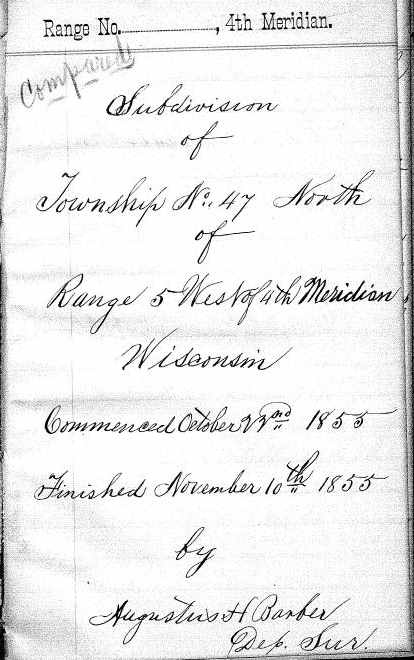 Range No. ................, 4th Meridian.
Compared
Subdivision
of
Township No. 47 North
of
Range 5 West of 4th Meridian
Wisconsin
Commenced October 22nd 1855
Finished November 10th 1855
by
Augustus H Barber
Dep. Sur.